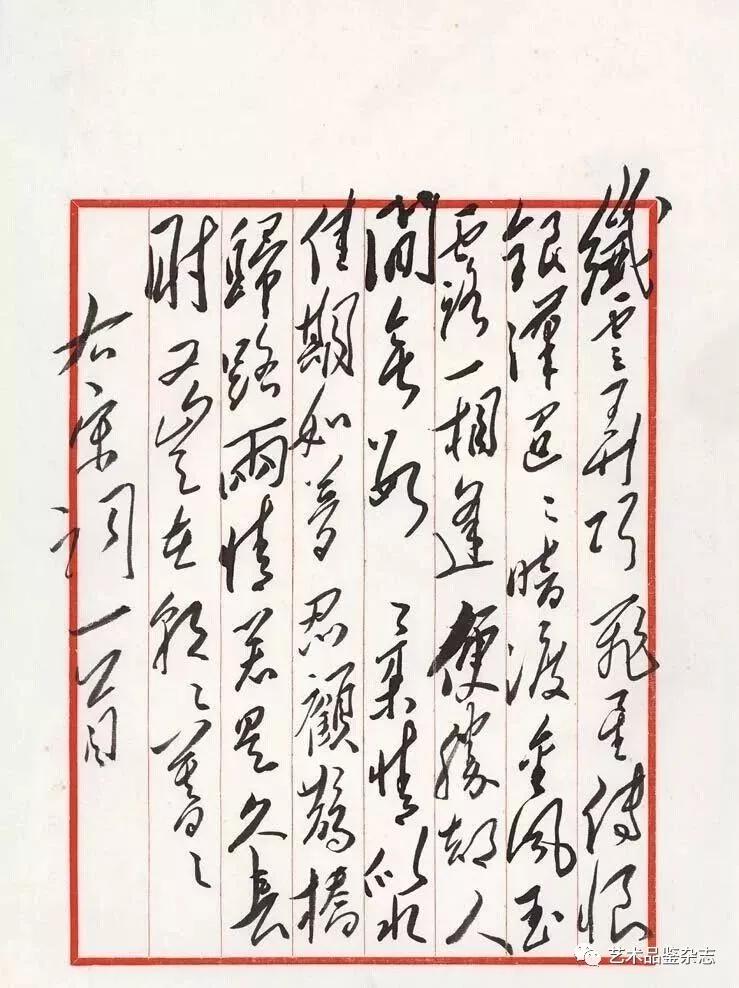 纖雲弄巧飛星傳恨
銀漢迢〻暗渡金風玉
露一相逢便勝却人
間無數 柔情似水
佳期如夢忍顧鵲橋
歸路兩情若是久長
時又豈在朝〻暮〻
右宋詞一首
艺术品鉴杂志